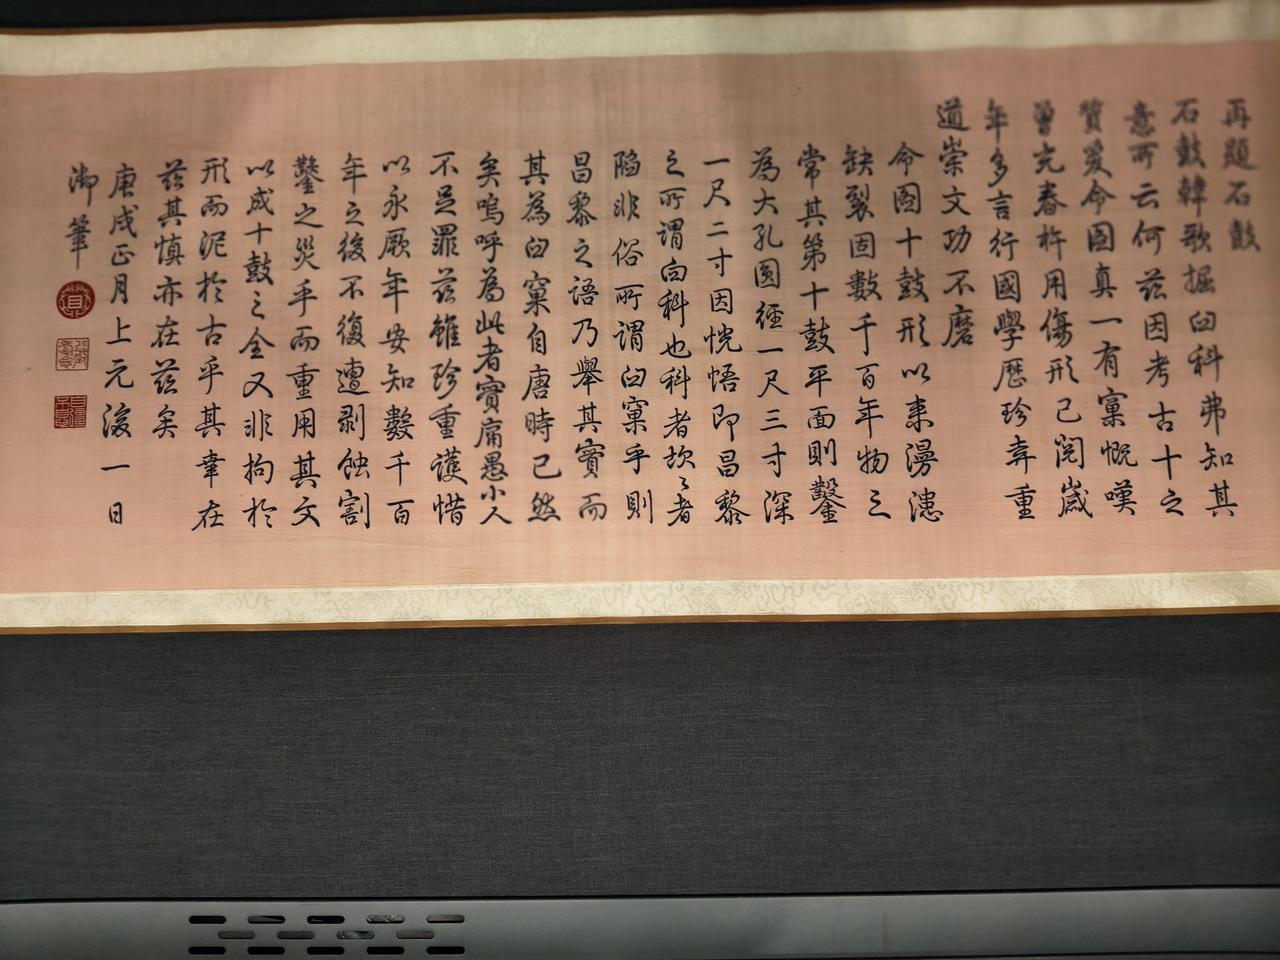 再題石鼓
石鼓韓歌掘臼科弗知其
意所云何茲因考古十之
質爰命圖真一有窠慨嘆
曾完春杵用傷形已閱歲
年多言行國學歷珍弆重
道崇文功不磨
命圖十鼓形以来漫漶
缺裂固數千百年物之
常其第十鼓平面則鑿
為大孔圓徑一尺三寸深
一尺二寸因恍悟即昌黎
之所謂臼科也科者坎坎者
陷非俗所謂臼窠乎則
昌黎之語乃舉其實而
其為臼窠自唐時已然
矣嗚呼為此者實庸愚小人
不足罪茲雖珍重護惜
以永厥年安知數千百
年之後不復遭剥蝕割
鑿之災乎而重用其文
以成十鼓之全又非拘於
形而泥於古乎其幸在
茲其慎亦在茲矣
庚戌正月上元後一日
御筆